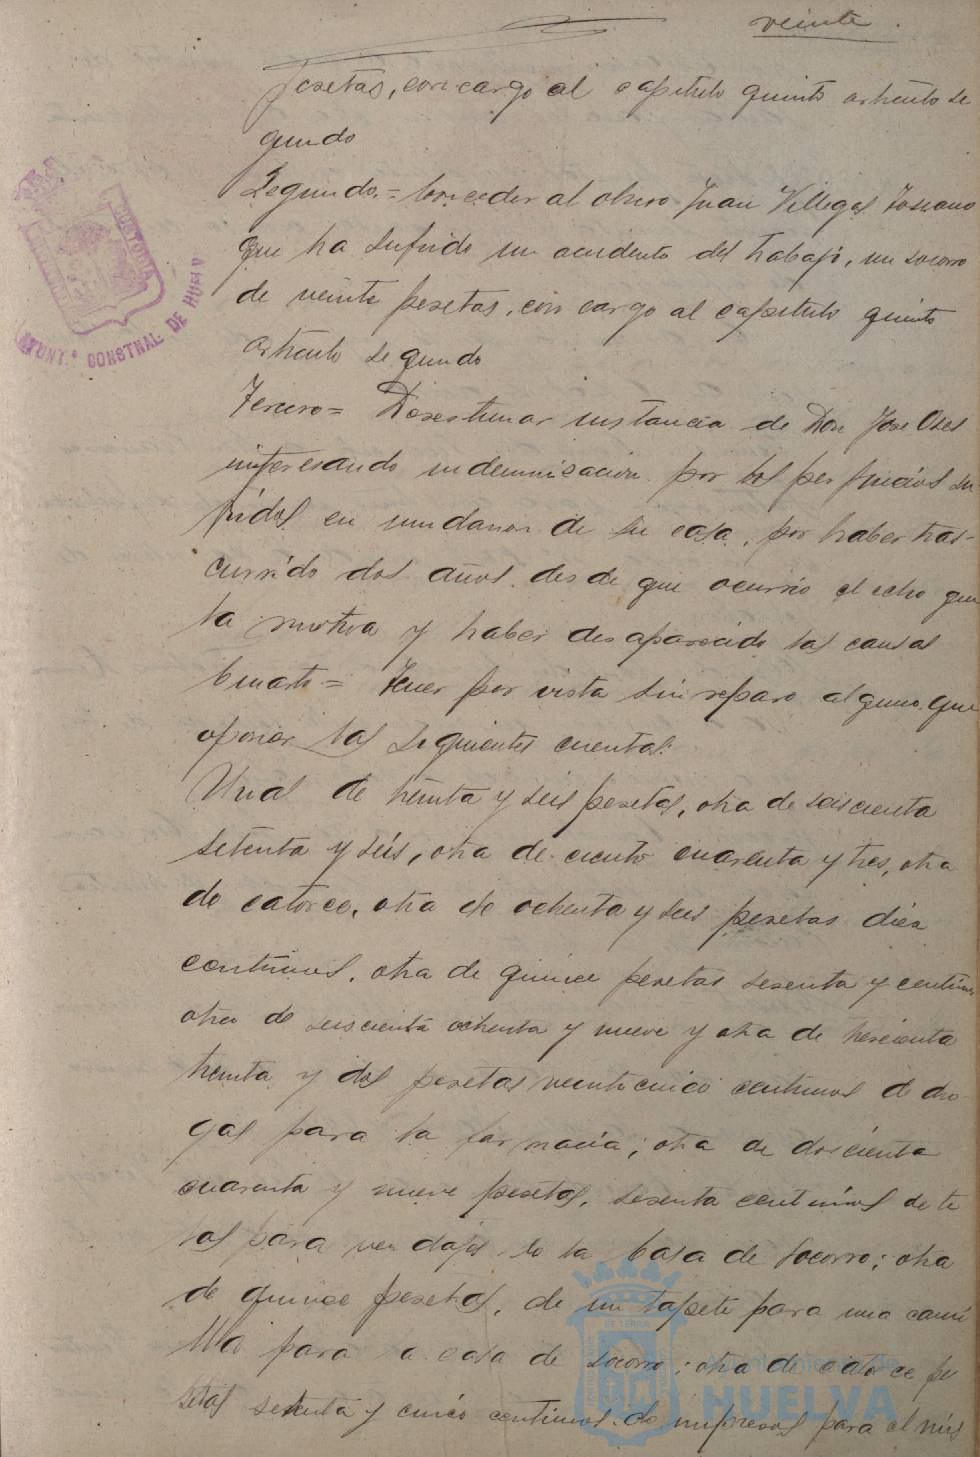 veinte.
pesetas, con cargo al capitulo quinto articulo se
gundo
Segundo.= Conceder al obrero Juan Villegas Toscano
que ha sufrido un accidente del trabajo, un socorro
de veinte pesetas, con cargo al capitulo quinto
articulo segundo
Tercero= Desestimar instancia de Don Jose Oses
interesando indemnizacion por los perjuicios su
fridos en inundacion de su casa, por haber tras-
currido dos años desde que ocurrio el echo que
la motiva y haber desaparecido las causas
Cuarto= Tener por vista sin reparo alguno que
oponer las siguientes cuentas:
Unas de treinta y seis pesetas, otra de seiscienta
setenta y seis, otra de ciento cuarenta y tres, otra
de catorce, otra de ochenta y seis pesetas diez
centimos, otra de quince pesetas sesenta y centimos
otra de seiscienta ochenta y nueve y otra de trescienta
treinta y dos pesetas veinticinco centimos de dro-
gas para la farmacia; otra de doscienta
cuarenta y nueve pesetas, sesenta centimos de te
las para vendajes de la Casa de Socorro; otra
de quince pesetas, de un tapete para una cami
lla para la casa de socorro; otra de catorce pe
setas setenta y cinco centimos de impresos para el mis
AYUNT.º CONSTNAL. DE HUELVA
HUELVA